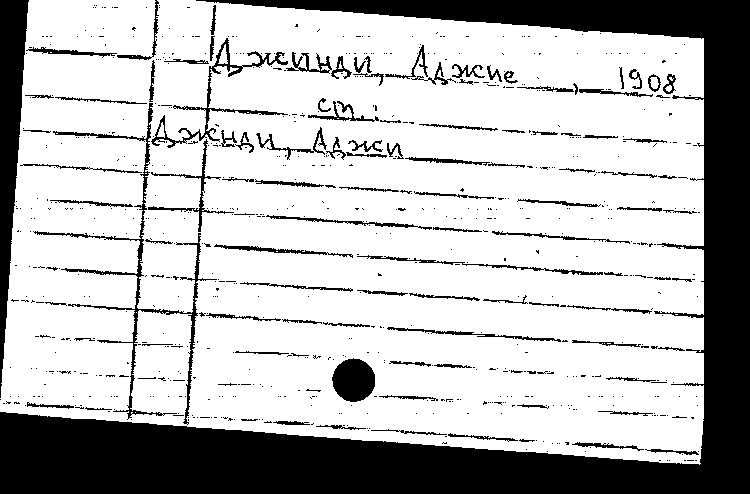 Джинди, Аджие , 1908
см.:
Джнди, Аджи